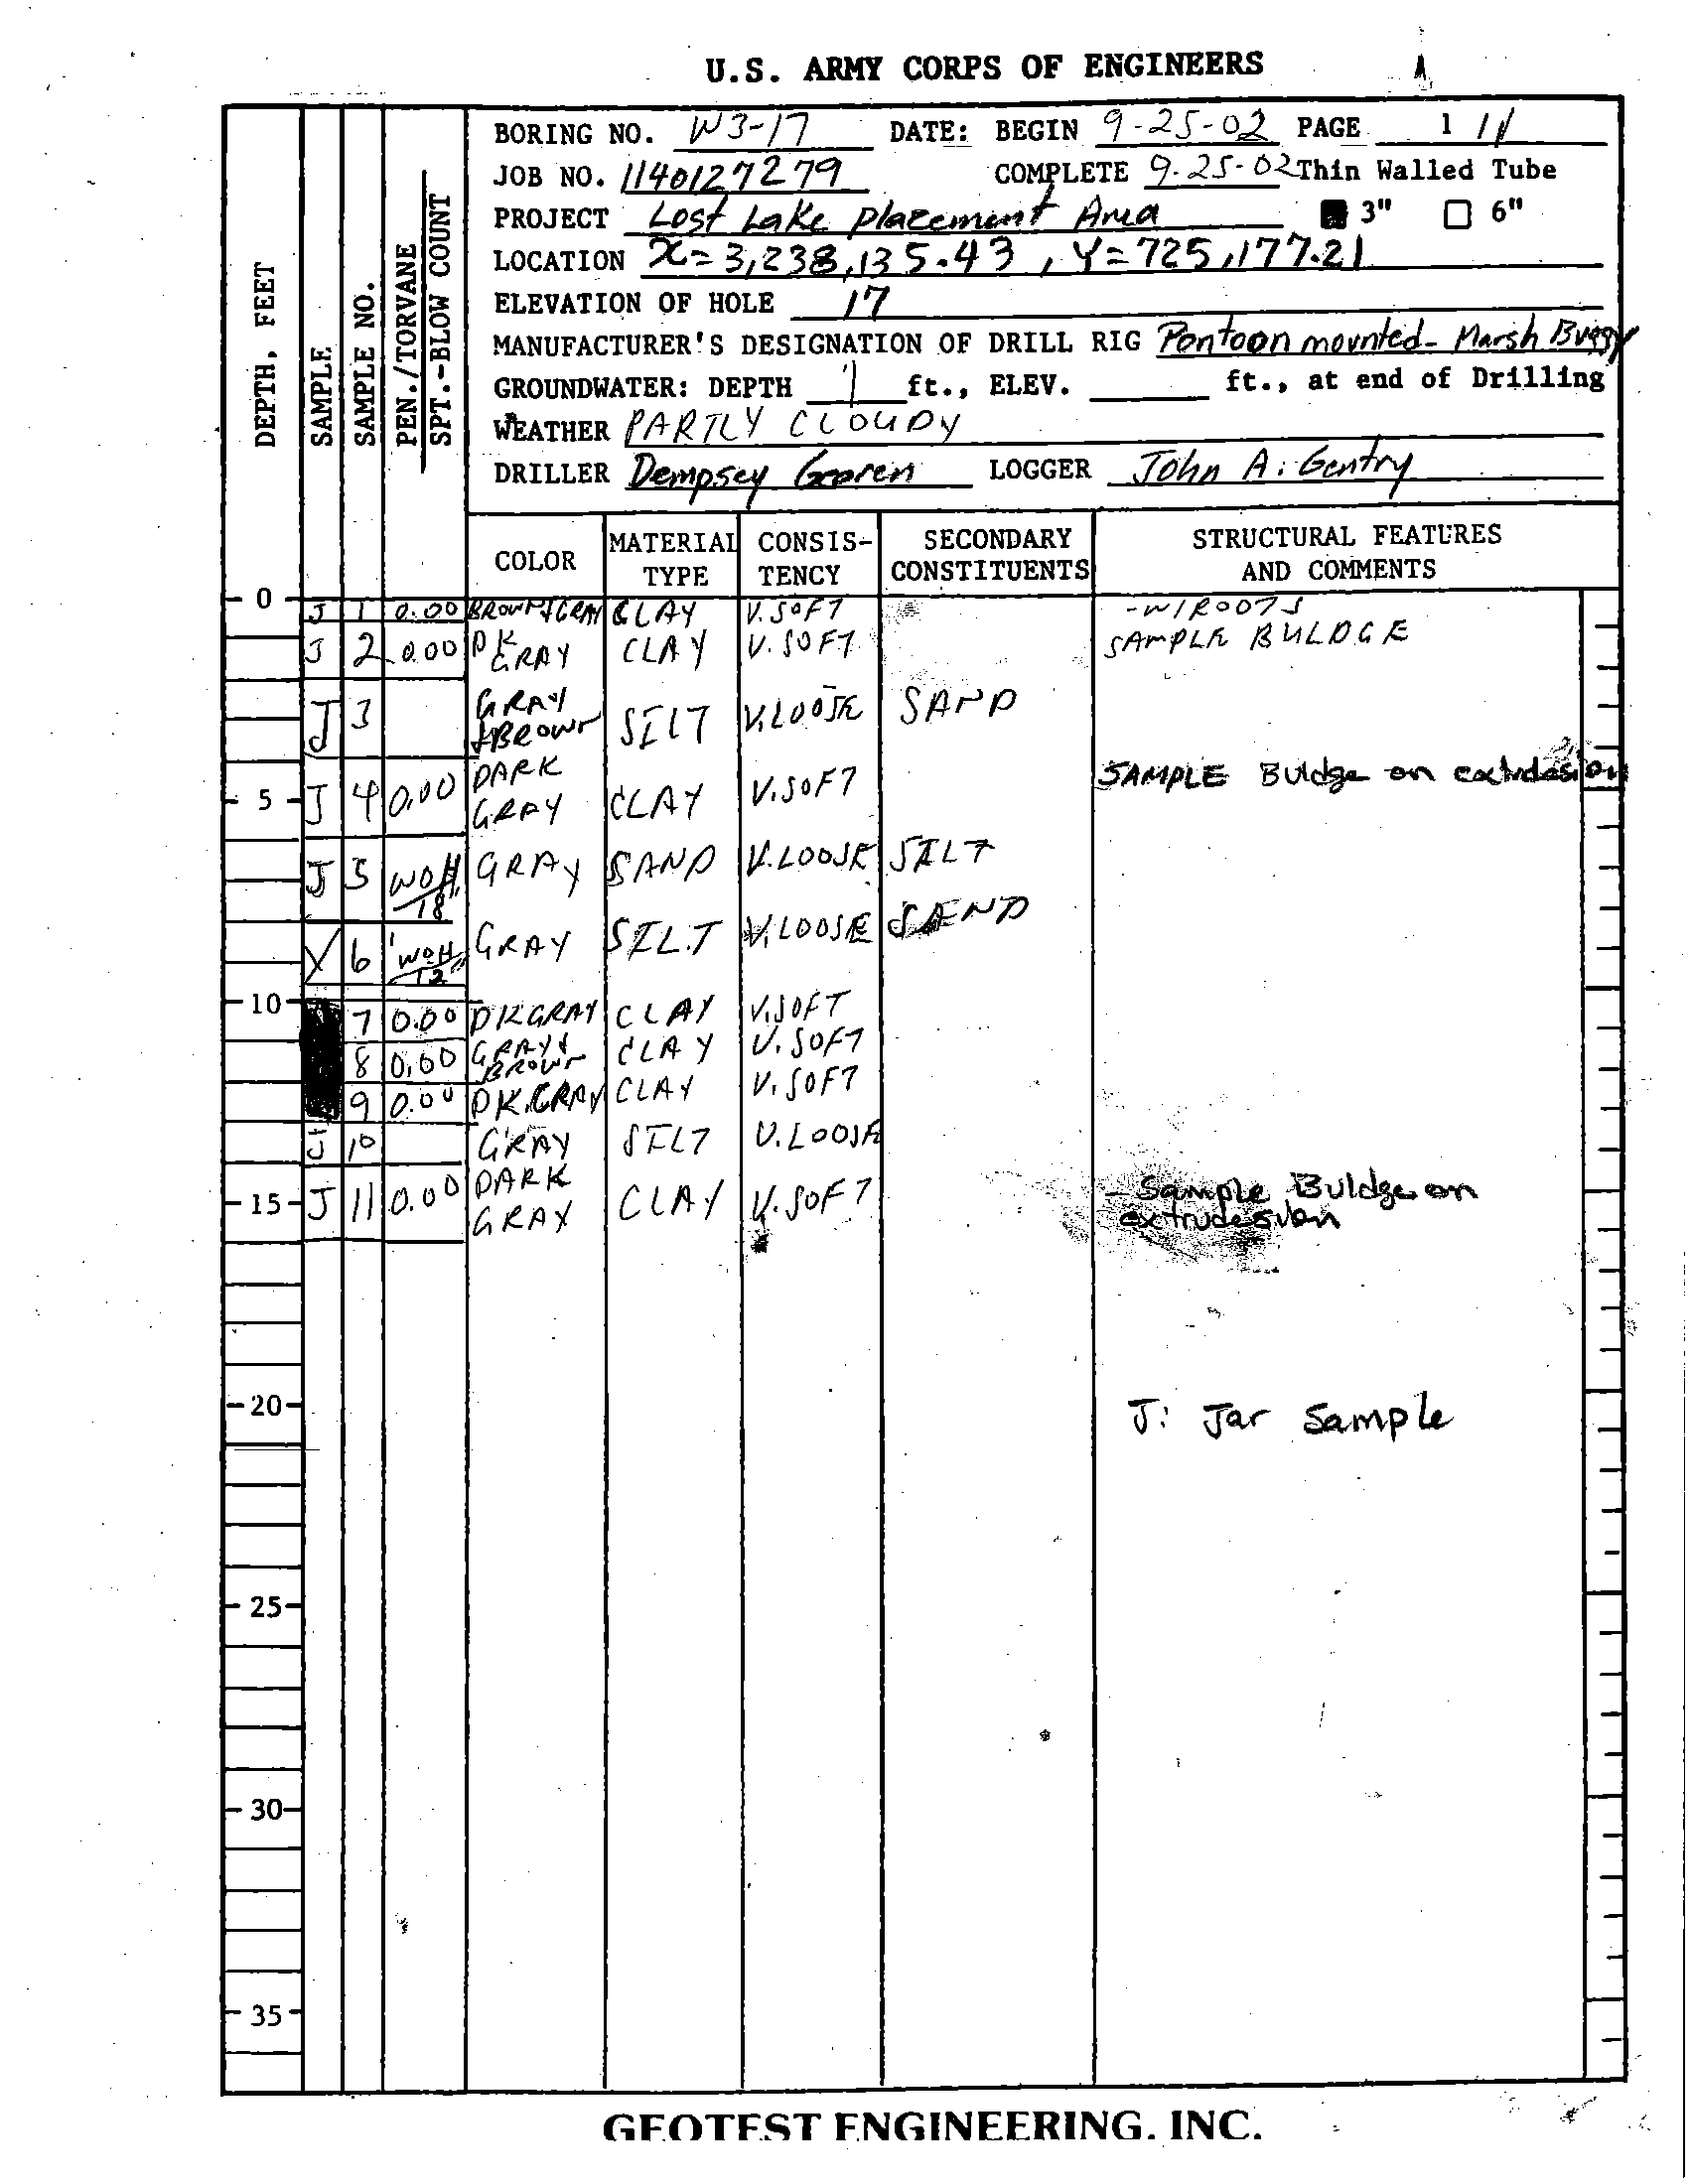 U.S. ARMY CORPS OF ENGINEERS
DEPTH, FEET
SAMPLE
SAMPLE NO.
PEN./TORVANE
SPT.-BLOW COUNT
BORING NO. W3-17 DATE: BEGIN 9-25-02 PAGE 1 / 1
JOB NO. 1140127279 COMPLETE 9-25-02 Thin Walled Tube
PROJECT Lost Lake Placement Area 3" 6"
LOCATION X=3,238,135.43, Y=725,177.21
ELEVATION OF HOLE 17
MANUFACTURER'S DESIGNATION OF DRILL RIG Pontoon mounted- Marsh Buggy
GROUNDWATER: DEPTH 1 ft., ELEV. ft., at end of Drilling
WEATHER PARTLY CLOUDY
DRILLER Dempsey LOGGER John A. Gentry
COLOR MATERIAL TYPE CONSIS-TENCY SECONDARY CONSTITUENTS STRUCTURAL FEATURES AND COMMENTS
0
J 1 0.00 BROWN & GRAY CLAY V.SOFT -W/ROOTS
J 2 0.00 DK GRAY CLAY V.SOFT SAMPLE BULDGE
J 3 GRAY & BROWN SILT V.LOOSE SAND
5 J 4 0.00 DARK GRAY CLAY V.SOFT SAMPLE Buldge on extrudesion
J 5 WOH/18" GRAY SAND V.LOOSE SILT
X 6 WOH/12" GRAY SILT V.LOOSE SAND
10 7 0.00 DK GRAY CLAY V.SOFT
8 0.00 GRAY & BROWN CLAY V.SOFT
9 0.00 DK.GRAY CLAY V.SOFT
J 10 GRAY SILT V.LOOSE
15 J 11 0.00 DARK GRAY CLAY V.SOFT - Sample Buldge on
extrudesion
20 J: Jar Sample
25
30
35
GEOTEST ENGINEERING, INC.